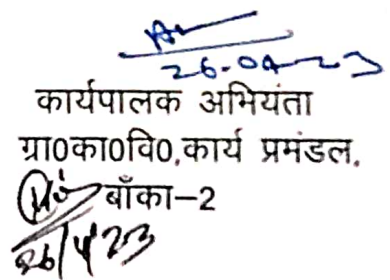 26-04-23
कार्यपालक अभियंता
ग्रा0का0वि0,कार्य प्रमंडल,
बाँका-2
26/4/23